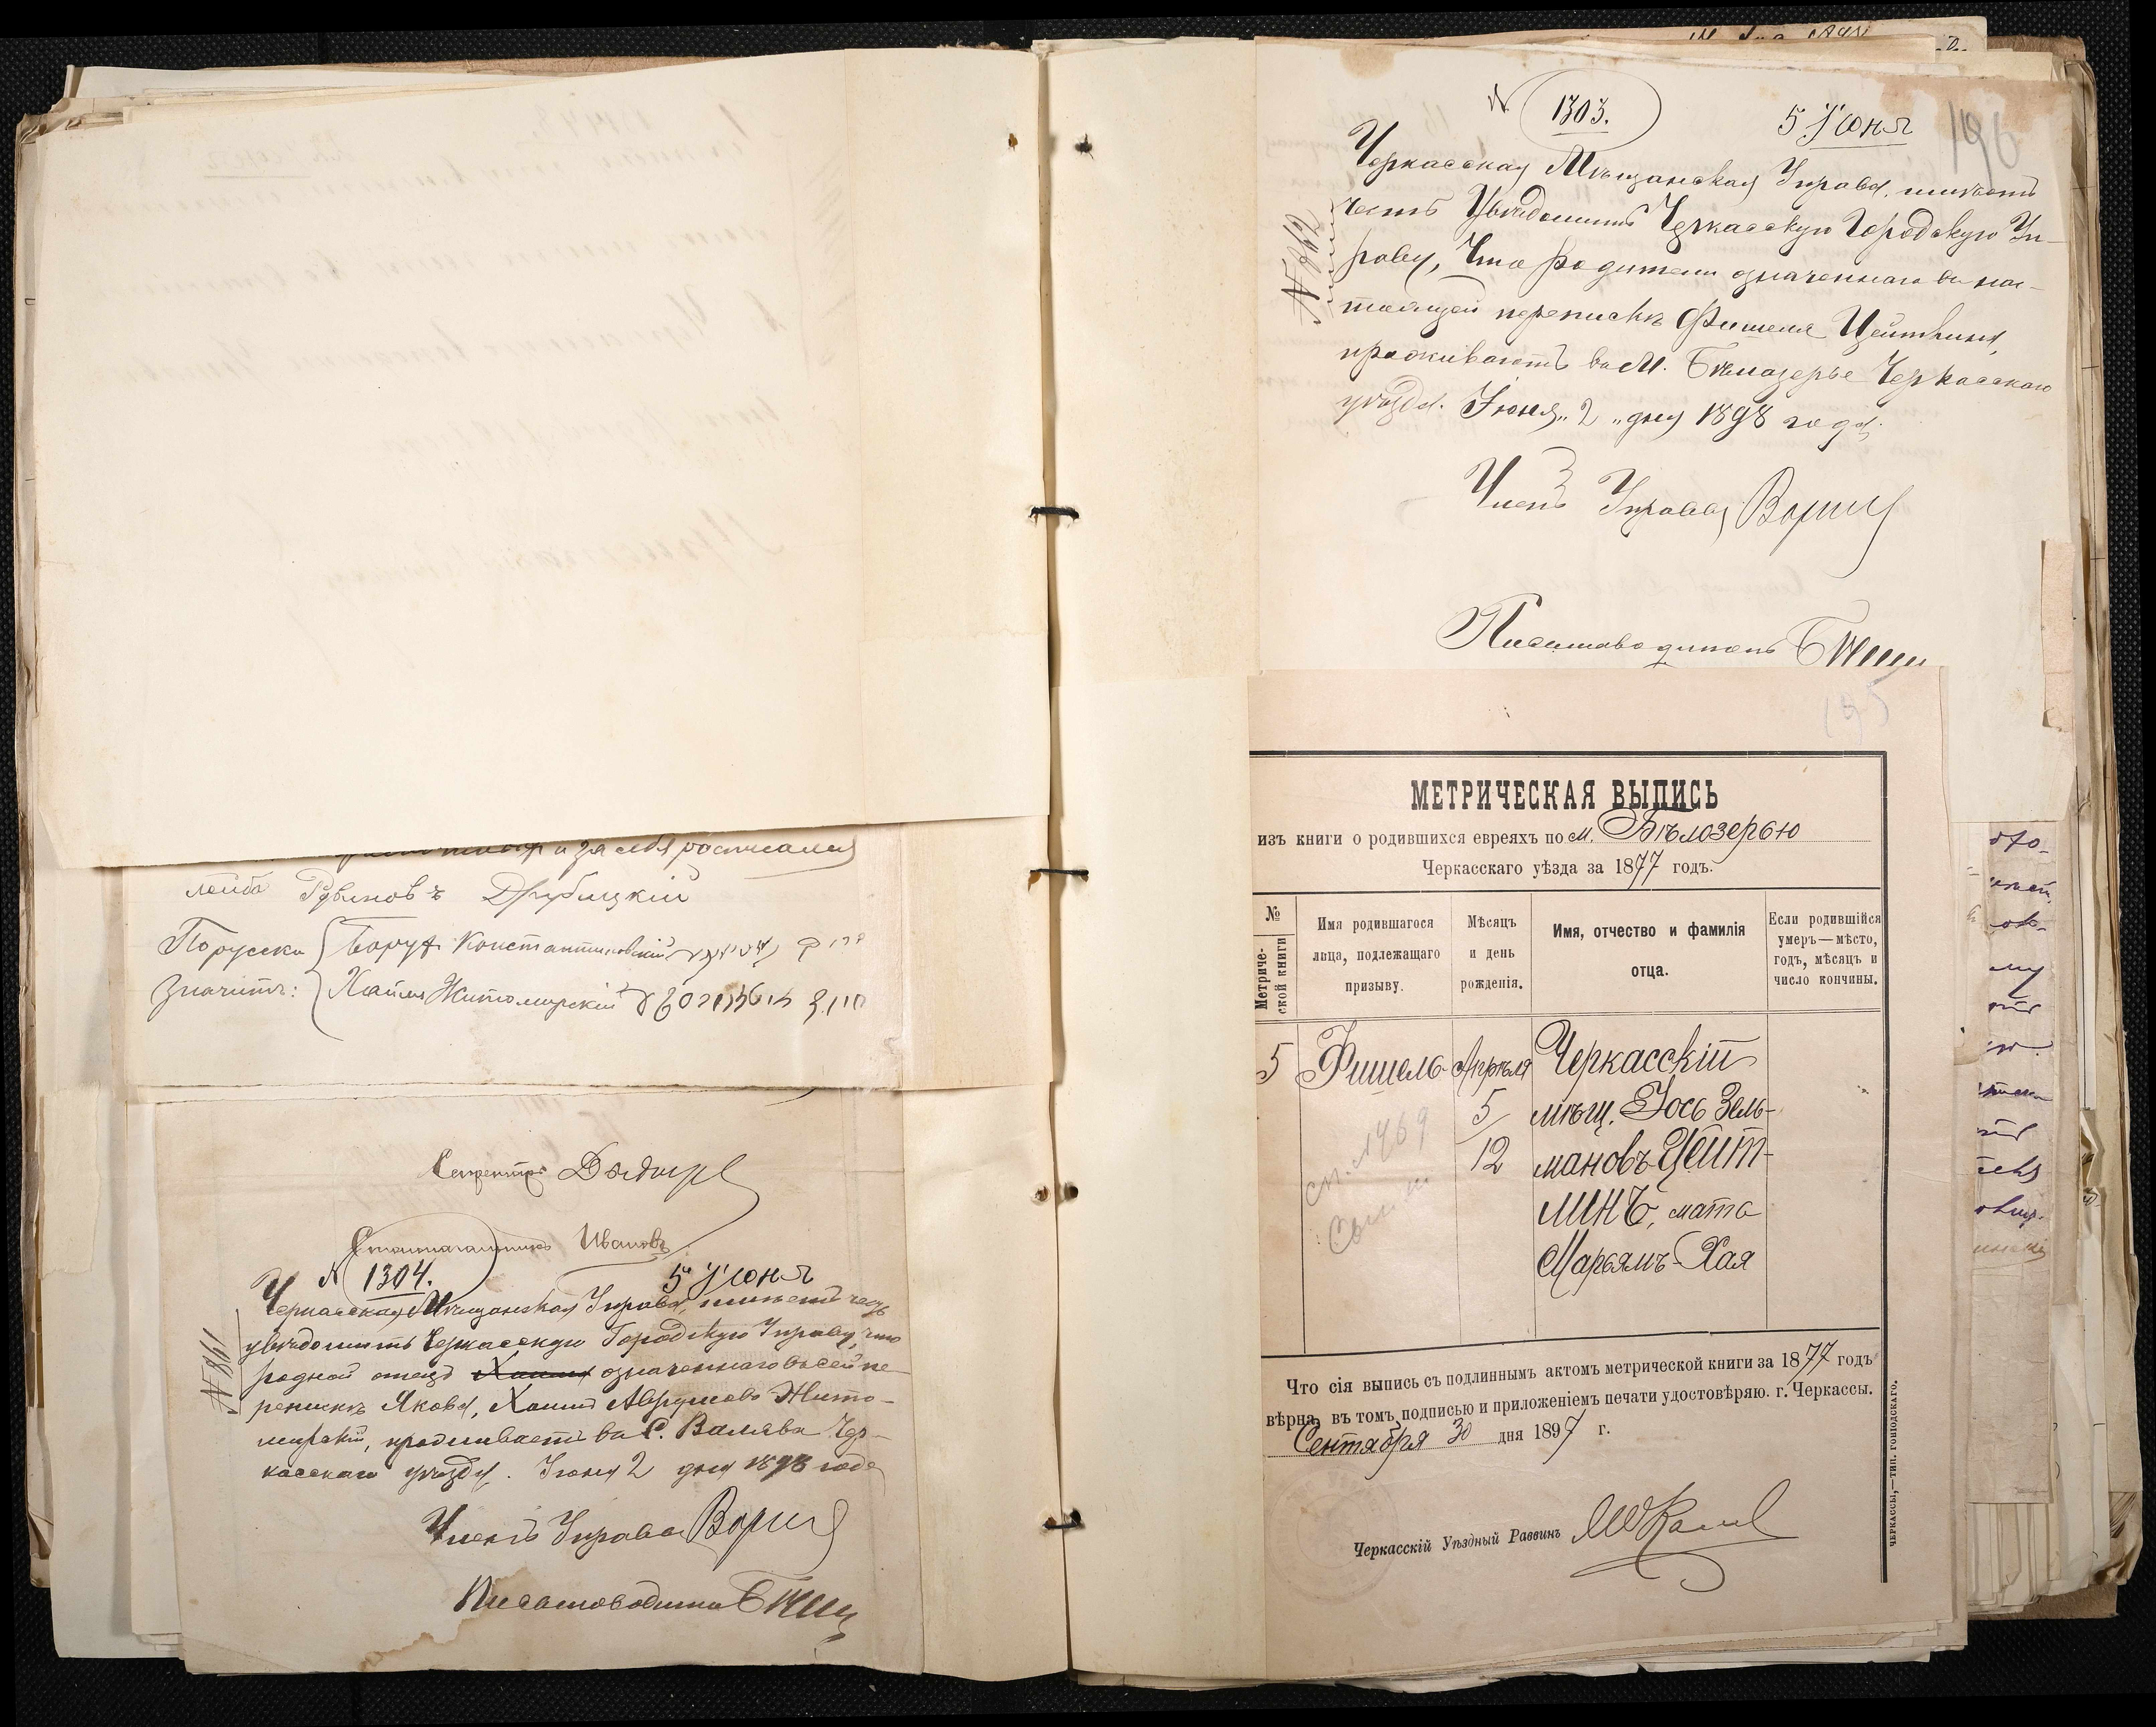 и за себя росписался
лейба Рувиновъ Друбицкій
Порусски Борух Константиновскій
Значитъ: Хаимъ Житомирскій
Секретарь
Столоначальникъ Ивановъ
N 1304. 5 Июня
Черкасская Мѣщанская Управа, имѣетъ честь
увѣдомить Черкасскую Городскую Управу, что
родной отецъ означеннаго въ сей пе-
репискѣ Якова, Хаимъ Аврумовъ Жито-
мирскій, проживаетъ въ С. Валява Чер-
касскаго уѣзда. Іюня 2 дня 1898 года
Членъ Управы
Письмоводитель
N 861
N 1303. 5 Июня
196
Черкасская Мѣщанская Управа, имѣетъ
честь Увѣдомить Черкасскую Городскую Уп-
раву, что родители означеннаго въ нас-
тоящей перепискѣ Фишеля Цейтлина,
проживаютъ въ М. Бѣлозерье Черкасскаго
уѣзда. Іюня „2„ дня 1898 года.
N 862
Членъ Управы
Письмоводитель
195
МЕТРИЧЕСКАЯ ВЫПИСЬ
изъ книги о родившихся евреяхъ по м. Бѣлозерью
Черкасскаго уѣзда за 1877 годъ.
№ Метриче-
ской книги
Имя родившагося
лица, подлежащаго
призыву.
Мѣсяцъ
и день
рожденія.
Имя, отчество и фамилія
отца.
Если родившійся
умеръ—мѣсто,
годъ, мѣсяцъ и
число кончины.
5 Фишель Апрѣля Черкасскій
5 мѣщ. Іось Зель-
12 мановъ Цейт-
линъ, мать
Марьямъ-Хая
Что сія выпись съ подлиннымъ актомъ метрической книги за 1877 годъ
вѣрна, въ томъ подписью и приложеніемъ печати удостовѣряю. г. Черкассы.
Сентября 30 дня 1897 г.
Черкасскій Уѣздный Раввинъ
ЧЕРКАССЫ,—ТИП. ГОРОДСКАГО.